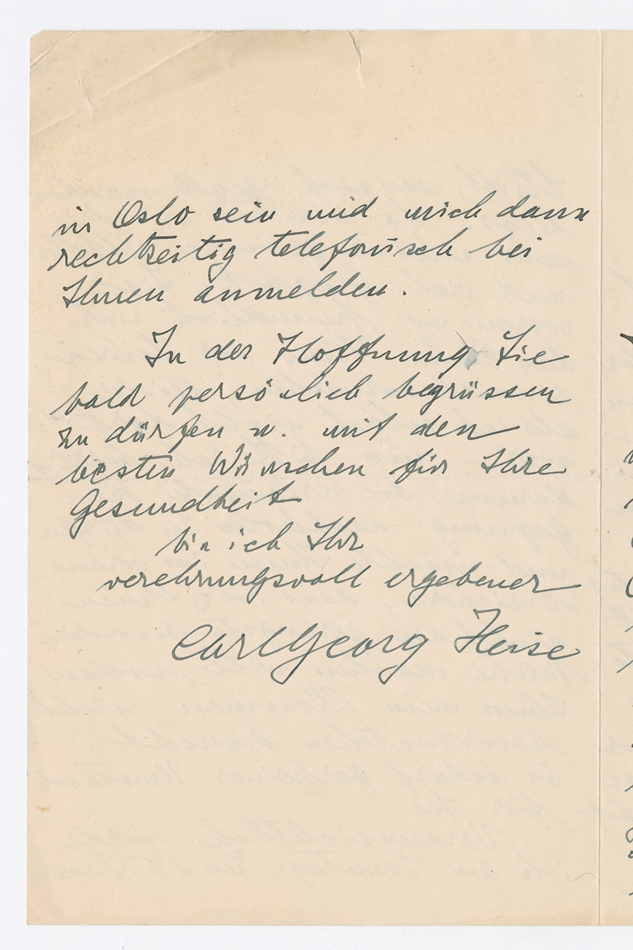 in Oslo sein und mich dann
rechtzeitig telefonisch bei
Ihnen anmelden.
In der Hoffnung, Sie
bald persönlich begrüssen
zu dürfen u. mit den
besten Wünschen für Ihre
Gesundheit
bin ich Ihr
verehrungsvoll ergebener
Carl Georg Heise